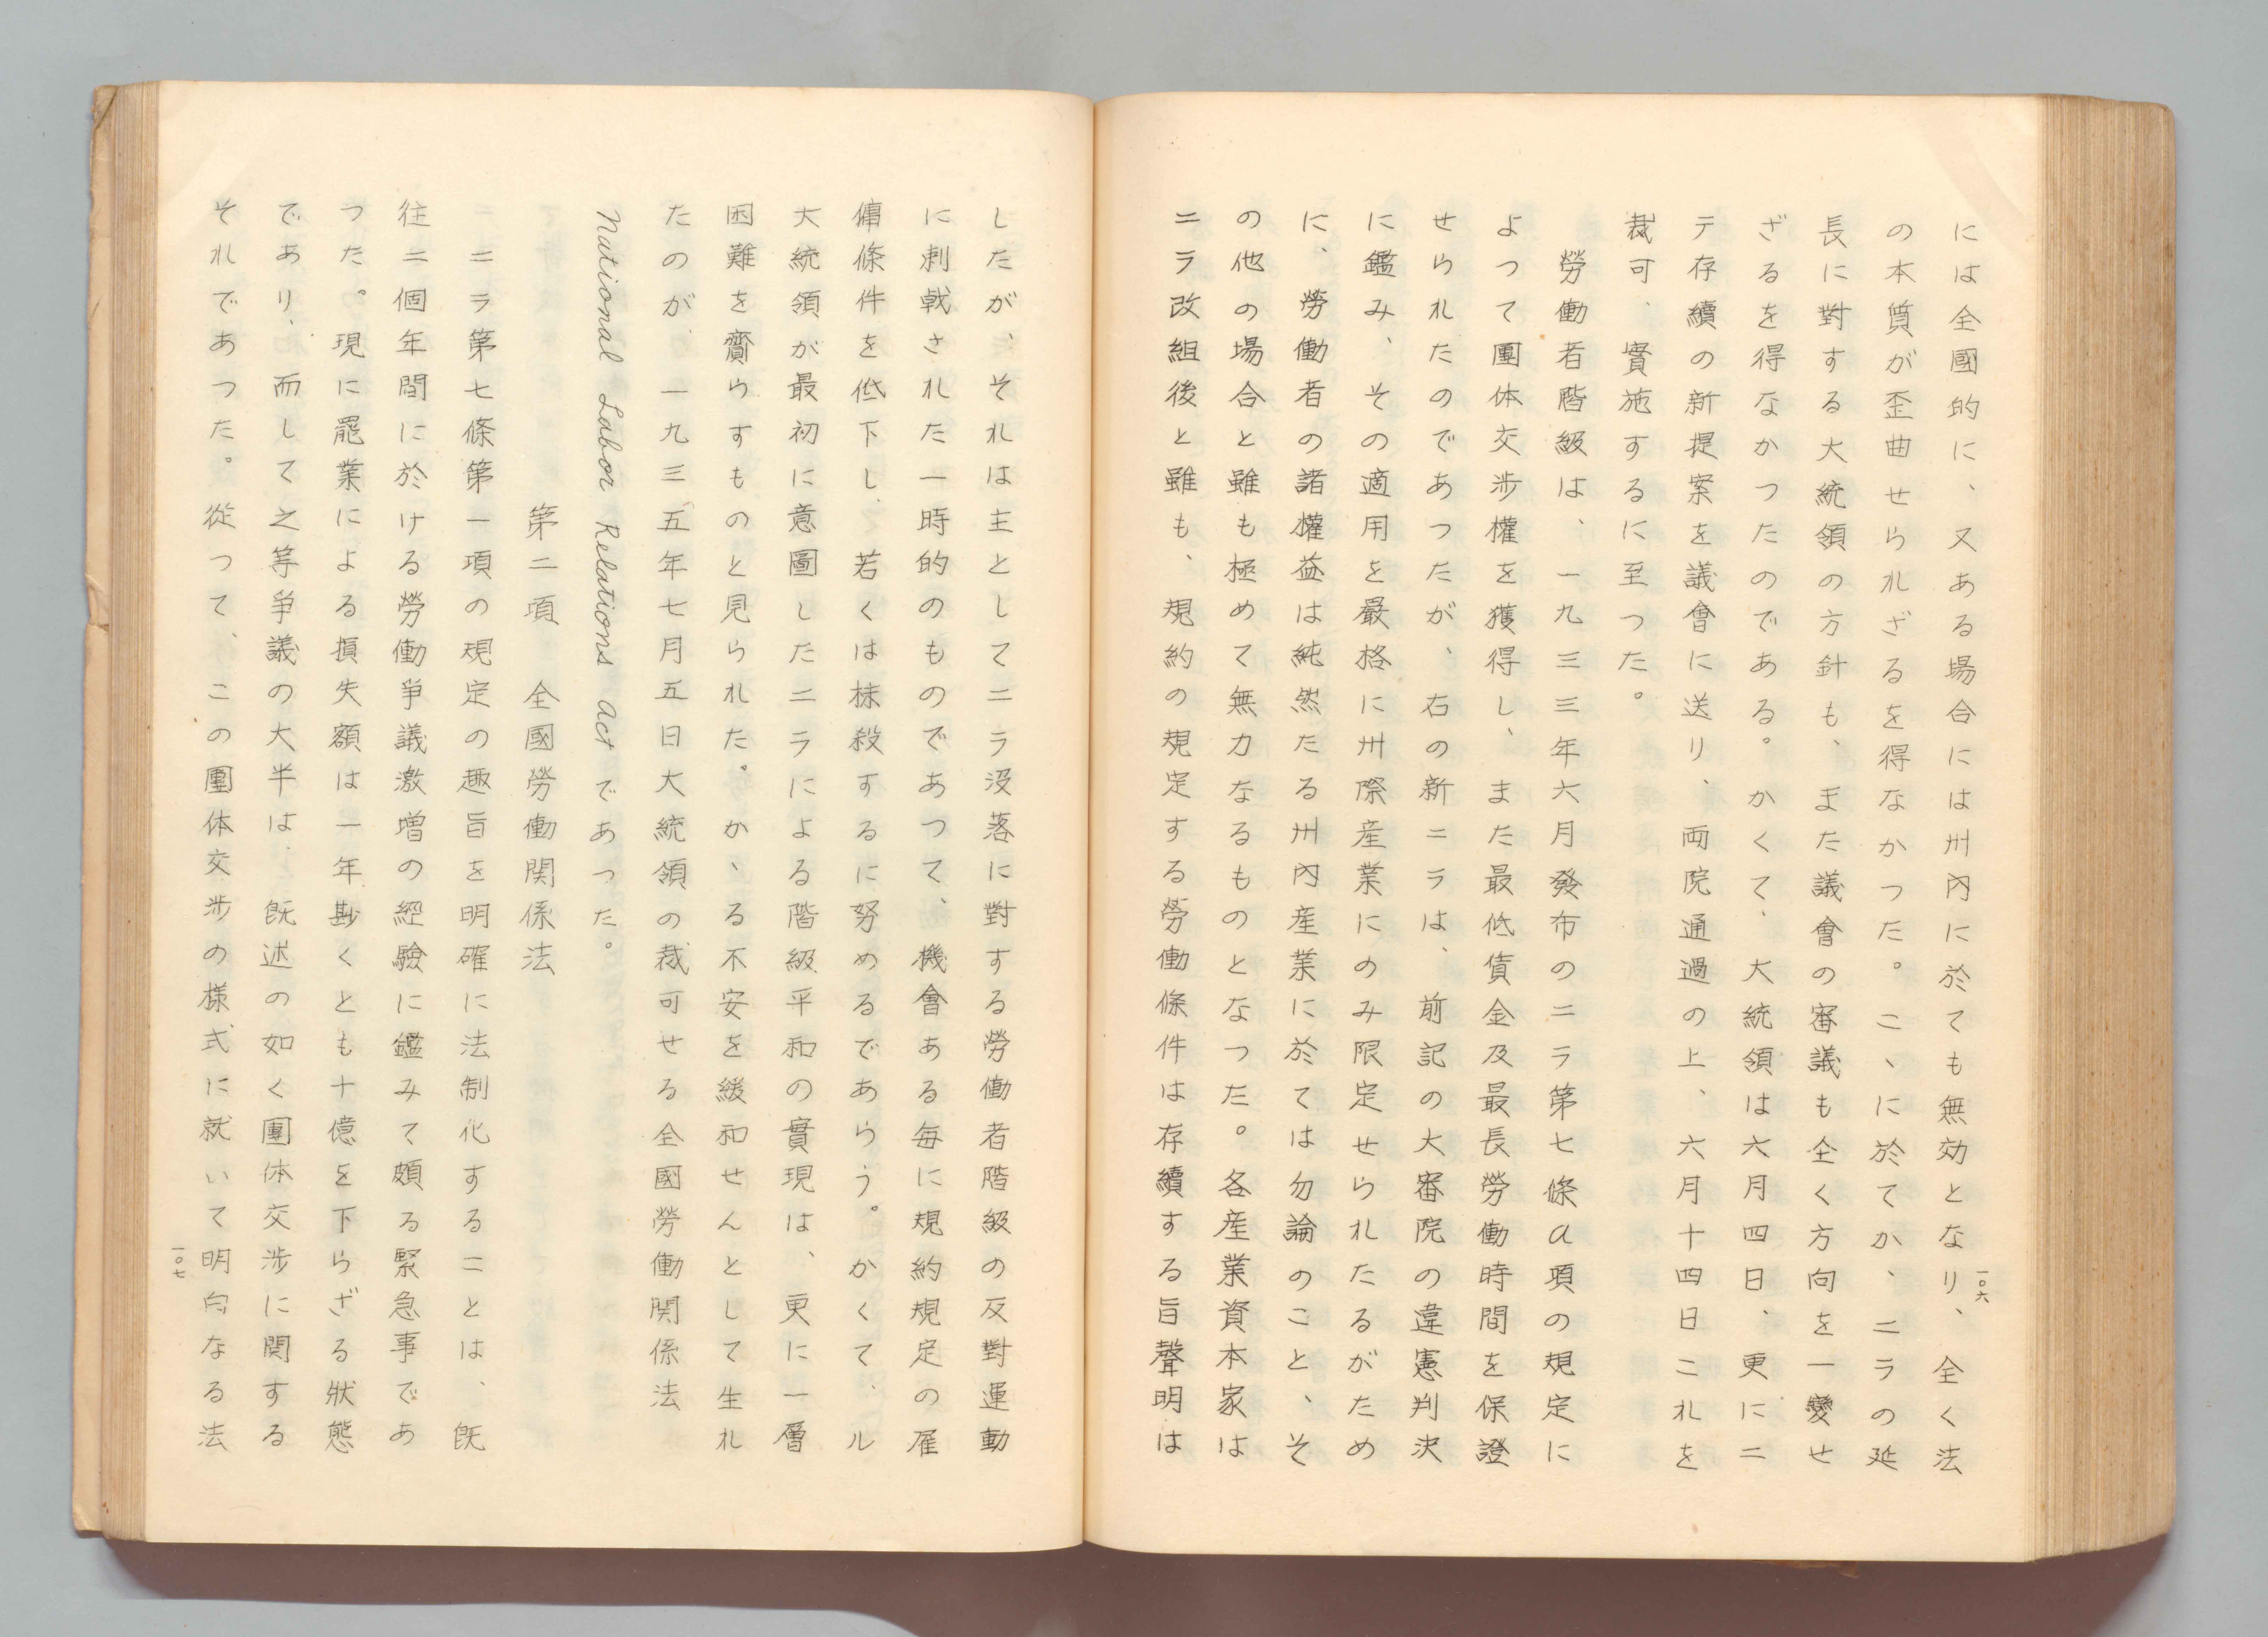 には全國的に、又ある場合には州內に於ても無効となり、全く法
の本質が歪曲せられざるを得なかつた。こゝに於てか、ニラの延
長に對する大統領の方針も、また議會の審議も全く方向を一變せ
ざるを得なかつたのである。かくて、大統領は六月四日、更にニ
テ存續の新提案を議會に送り、両院通過の上、六月十四日これを
裁可、實施するに至つた。
勞働者階級は、一九三三年六月發布のニラ第七條a項の規定に
よつて團体交涉權を獲得し、また最低賃金及最長勞働時間を保證
せられたのであつたが、右の新ニラは、前記の大審院の違憲判決
に鑑み、その適用を嚴格に州際産業にのみ限定せられたるがため
に、勞働者の諸權益は純然たる州內産業に於ては勿論のこと、そ
の他の場合と雖も極めて無力なるものとなつた。各産業資本家は
ニラ改組後と雖も、規約の規定する勞働條件は存續する旨聲明は
一〇六
したが、それは主としてニラ没落に對する勞働者階級の反對運動
に刺戟された一時的のものであつて、機會ある毎に規約規定の雇
傭條件を低下し、若くは抹殺するに努めるであらう。かくて、ル
大統領が最初に意圖したニラによる階級平和の實現は、更に一層
困難を齎らすものと見られた。かゝる不安を緩和せんとして生れ
たのが、一九三五年七月五日大統領の裁可せる全國勞働関係法
National Labor Relations Act であつた。
第二項 全國勞働関係法
ニラ第七條第一項の規定の趣旨を明確に法制化することは、既
往二個年間に於ける勞働爭議激増の經驗に鑑みて頗る緊急事であ
つた。現に罷業による損失額は一年尠くとも十億を下らざる狀態
であり、而して之等爭議の大半は、既述の如く團体交涉に関する
それであつた。從つて、この團体交涉の様式に就いて明白なる法
一〇七